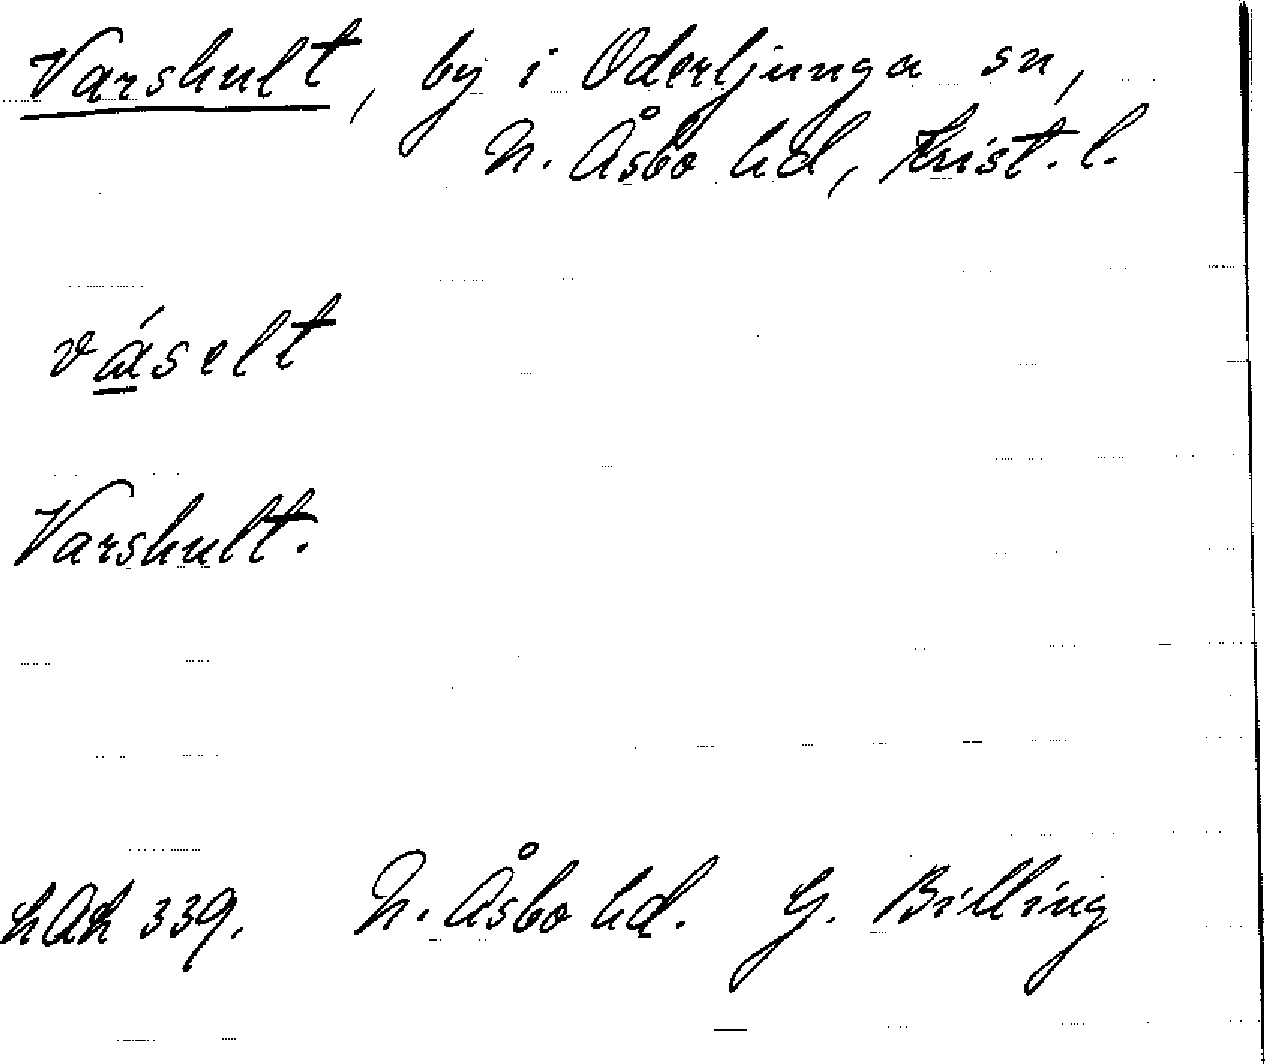 Varshult, by i Oderljunga sn,
N. Åsbo hd, Krist. l.
váselt
Varshult.
LAL 339. N. Åsbo hd. G. Billing